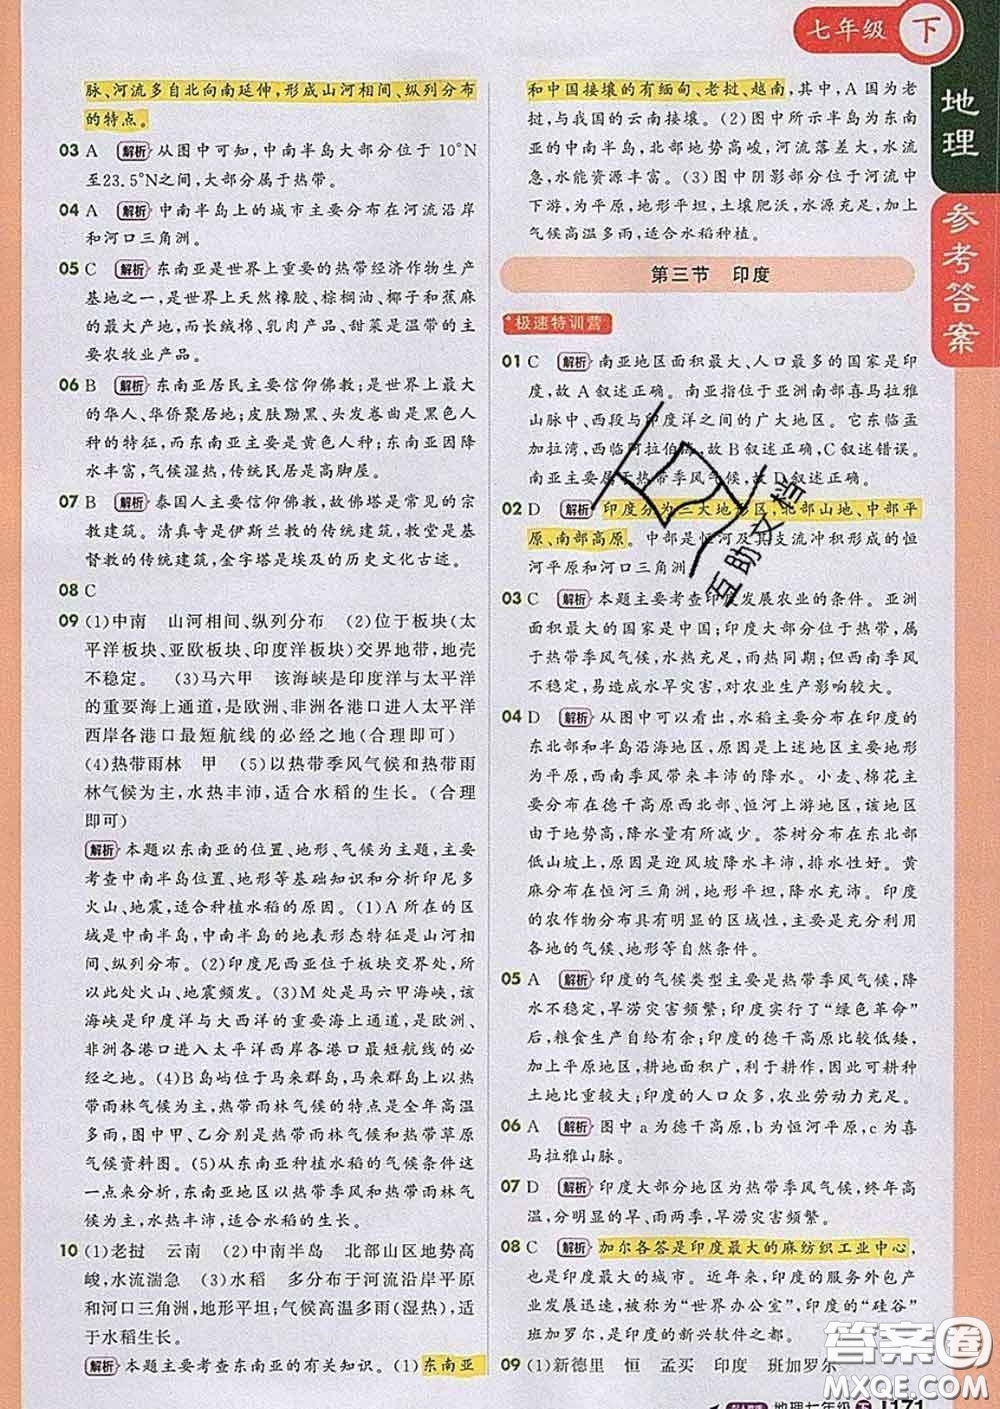 七年级 下
地理
参考答案
脉、河流多自北向南延伸,形成山河相间、纵列分布
的特点。
03 A 解析 从图中可知,中南半岛大部分位于10°N
至23.5°N之间,大部分属于热带。
04 A 解析 中南半岛上的城市主要分布在河流沿岸
和河口三角洲。
05 C 解析 东南亚是世界上重要的热带经济作物生产
基地之一,是世界上天然橡胶、棕榈油、椰子和蕉麻
的最大产地,而长绒棉、乳肉产品、甜菜是温带的主
要农牧业产品。
06 B 解析 东南亚居民主要信仰佛教;是世界上最大
的华人、华侨聚居地;皮肤黝黑、头发卷曲是黑色人
种的特征,而东南亚主要是黄色人种;东南亚因降
水丰富,气候湿热,传统民居是高脚屋。
07 B 解析 泰国人主要信仰佛教,故佛塔是常见的宗
教建筑。清真寺是伊斯兰教的传统建筑,教堂是基督
教的传统建筑,金字塔是埃及的历史文化古迹。
08 C
09 (1)中南 山河相间、纵列分布 (2)位于板块(太
平洋板块、亚欧板块、印度洋板块)交界地带,地壳
不稳定。 (3)马六甲 该海峡是印度洋与太平洋
的重要海上通道,是欧洲、非洲各港口进入太平洋
西岸各港口最短航线的必经之地(合理即可)
(4)热带雨林 甲 (5)以热带季风气候和热带雨
林气候为主,水热丰沛,适合水稻的生长。(合理
即可)
解析 本题以东南亚的位置、地形、气候为主题,主要
考查中南半岛位置、地形等基础知识和分析印尼多
火山、地震,适合种植水稻的原因。(1)A所在的区
域是中南半岛,中南半岛的地表形态特征是山河相
间、纵列分布。(2)印度尼西亚位于板块交界处,所
以此处火山、地震频发。(3)M处是马六甲海峡,该
海峡是印度洋与大西洋的重要海上通道,是欧洲、
非洲各港口进入太平洋西岸各港口最短航线的必
经之地。(4)B岛屿位于马来群岛,马来群岛以热
带雨林气候为主,热带雨林气候的特点是全年高温
多雨,图中甲、乙分别是热带雨林气候和热带草原
气候资料图。(5)从东南亚种植水稻的气候条件这
一点来分析,东南亚地区以热带季风和热带雨林气
候为主,水热丰沛,适合水稻的生长。
10 (1)老挝 云南 (2)中南半岛 北部山区地势高
峻,水流湍急 (3)水稻 多分布于河流沿岸平原
和河口三角洲,地形平坦;气候高温多雨(湿热),适
于水稻生长。
解析 本题主要考查东南亚的有关知识。(1)东南亚
和中国接壤的有缅甸、老挝、越南,其中,A国为老
挝,与我国的云南接壤。(2)图中所示半岛为东南
亚的中南半岛,北部地势高峻,河流落差大,水流湍
急,水能资源丰富。(3)图中阴影部分位于河流中
下游,为平原,地形平坦,土壤肥沃,水源充足,加上
气候高温多雨,适合水稻种植。
第三节 印度
极速特训营
01 C 解析 南亚地区面积最大、人口最多的国家是印
度,故A叙述正确。南亚指位于亚洲南部喜马拉雅
山脉中、西段与印度洋之间的广大地区。它东临孟
加拉湾,西临阿拉伯海,故B叙述正确,C叙述错误。
南亚主要属于热带季风气候,故D叙述正确。
02 D 解析 印度分为三大地形区,北部山地、中部平
原、南部高原。中部是恒河及其支流冲积形成的恒
河平原和河口三角洲
03 C 解析 本题主要考查印度发展农业的条件。亚洲
面积最大的国家是中国;印度大部分位于热带,属
于热带季风气候,水热充足,雨热同期;但西南季风
不稳定,易造成水旱灾害,对农业生产影响较大。
04 D 解析 从图中可以看出,水稻主要分布在印度的
东北部和半岛沿海地区,原因是上述地区主要地形
为平原,西南季风带来丰沛的降水。小麦、棉花主
要分布在德干高原西北部、恒河上游地区,该地区
由于地势高,降水量有所减少。茶树分布在东北部
低山坡上,原因是迎风坡降水丰沛,排水性好。黄
麻分布在恒河三角洲,地形平坦,降水充沛。印度
的农作物分布具有明显的区域性,主要是充分利用
各地的气候、地形等自然条件。
05 A 解析 印度的气候类型主要是热带季风气候,降
水不稳定,旱涝灾害频繁;印度实行了“绿色革命”
后,粮食生产自给有余;印度的德干高原地势比较低矮,
起伏和缓,耕地面积广,利于耕作,因此印度的耕种
土地比重较大;印度的人口众多,农业劳动力充足。
06 A 解析 图中a为德干高原,b为恒河平原,c为喜
马拉雅山脉。
07 D 解析 印度大部分地区为热带季风气候,终年高
温,分明显的旱、雨两季,旱涝灾害频繁。
08 C 解析 加尔各答是印度最大的麻纺织工业中心,
也是印度最大的城市。近年来,印度的服务外包产
业发展迅速,被称为“世界办公室”,印度的“硅谷”
班加罗尔,是印度的新兴软件之都。
09 (1)新德里 恒 孟买 印度 班加罗尔
互助文档
答案圈
MXQE.COM
地理七年级 下 171